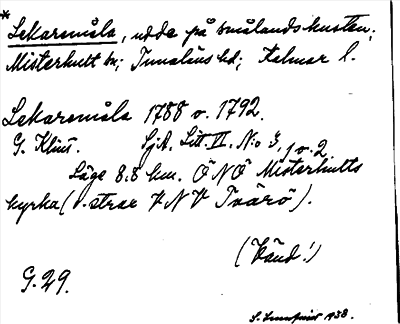 * Lekaremåla, udde på smålandskusten;
Misterhult sn; Tunaläns hd; Kalmar l.
Lekaremåla 1788 o. 1792.
G. Klint. Sjk. Litt. VI. N:o 3, 1 o. 2
Läge 8.8 km. ÖNÖ Misterhults
kyrka (v. strax VNV Tvärö).
(Vänd!)
G. 29.
1938.